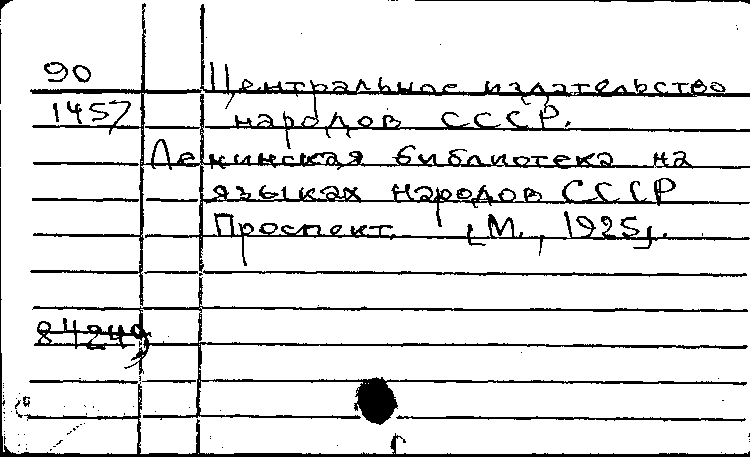 90 Центральное издательство
1457 народов СССР.
Ленинская библиотека на
языках народов СССР
Проспект. [М., 1925].
84249
г